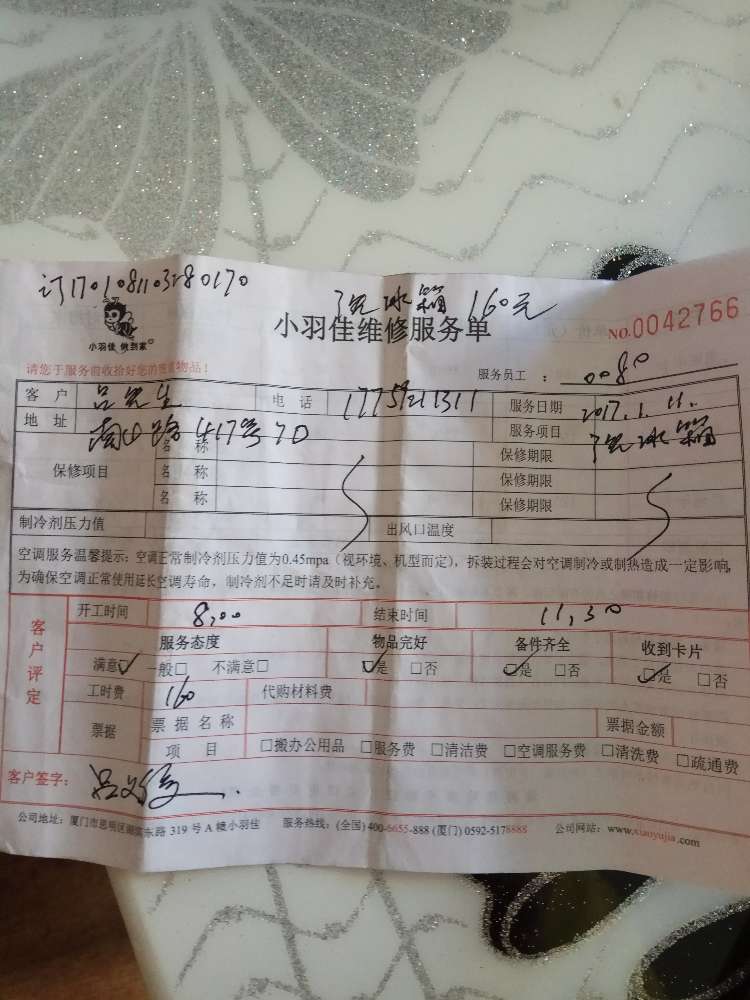 订1701081103280170
洗冰箱 160元
小羽佳维修服务单
NO.0042766
小羽佳 做到家
请您于服务前收拾好您的贵重物品!
服务员工 : 0080
客户 吕先生 电话 服务日期 2017.1.11.
地址 南山路417号7D 服务项目 洗冰箱
保修项目 名称 保修期限
名称 保修期限
名称 保修期限
制冷剂压力值 出风口温度
空调服务温馨提示: 空调正常制冷剂压力值为0.45mpa(视环境、机型而定),拆装过程会对空调制冷或制热造成一定影响,
为确保空调正常使用延长空调寿命,制冷剂不足时请及时补充。
客户评定
开工时间 8:00 结束时间 11:30
服务态度 物品完好 备件齐全 收到卡片
满意☑ 一般□ 不满意□ ☑是 □否 ☑是 □否 ☑是 □否
工时费 160 代购材料费
票据 票据名称 票据金额
项目 □搬办公用品 □服务费 □清洁费 □空调服务费 □清洗费 □疏通费
客户签字: 吕
公司地址: 厦门市思明区湖滨东路 319 号 A 幢小羽佳 服务热线: (全国) 400-6655-888 (厦门) 0592-5178888 公司网站: www.xiaoyujia.com